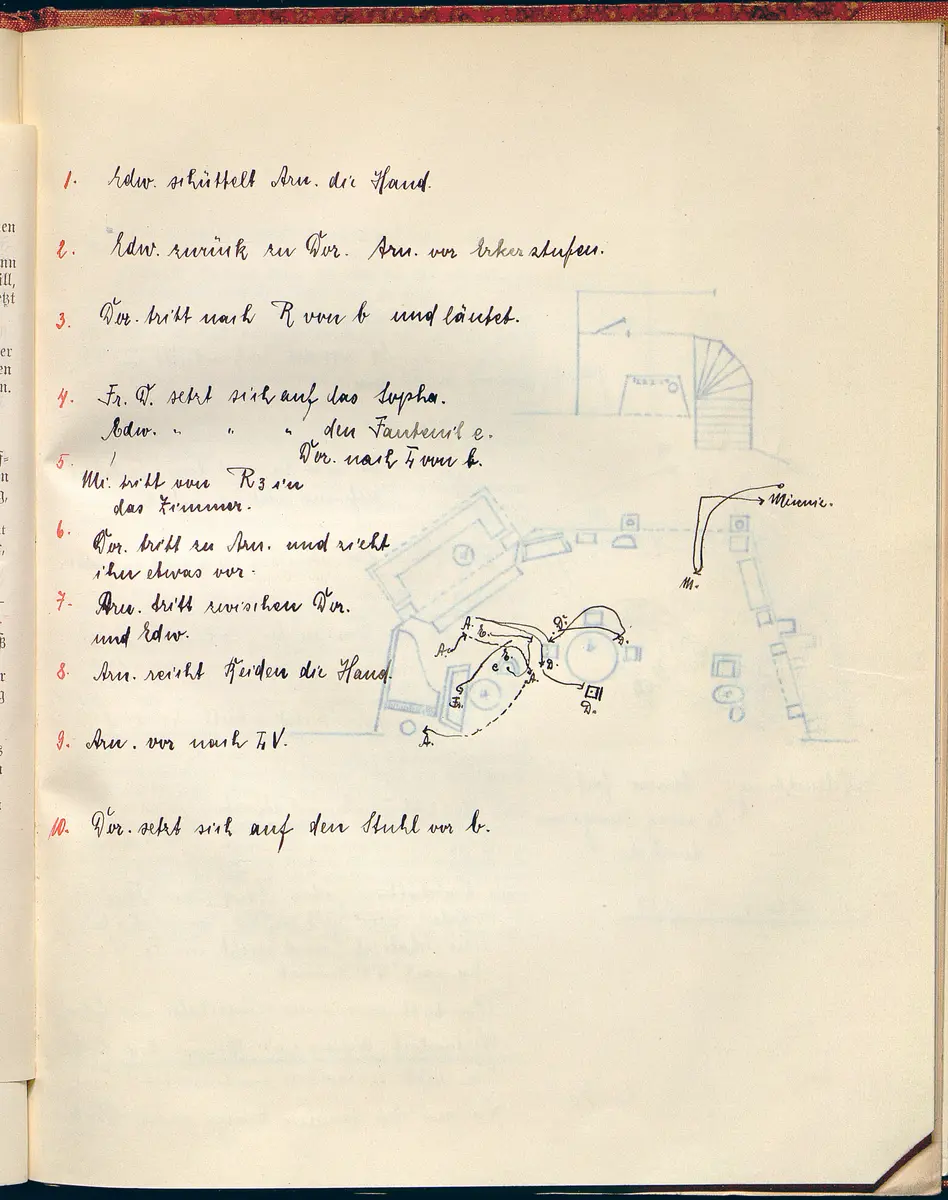 1. Edw. schüttelt Arn. die Hand.
2. Edw. zurück zu Dor. Arn. vor Erkerstufen.
3. Dor. tritt nach R von b und läutet.
4. Fr. D. setzt sich auf das Sopha.
Edw. " " " den Fauteuil e.
5. Dor. nach L von b.
Mi. tritt von R 3 in
das Zimmer.
6. Dor. tritt zu Arn. und zieht
ihn etwas vor.
7. Arn. tritt zwischen Dor.
und Edw.
8. Arn. reicht Beiden die Hand.
9. Arn. vor nach L V.
10. Dor. setzt sich auf den Stuhl vor b.
Minnie.
M.
A.
E.
D.
A.
D.
E.
e
D.
A.
Fr.
D.
A.
en
nn
ill,
etzt
er
en
n.